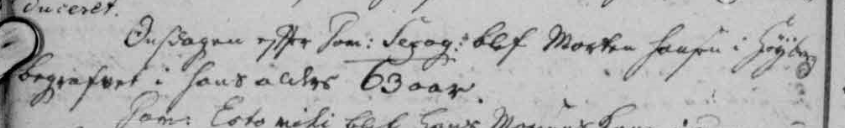 duceret.
Onsdagen efter Dom: Sexag: blef Morten Hansen i Høyberg
begrafvet i hans alders 63 aar.
Dom: Esto mihi blef Hans